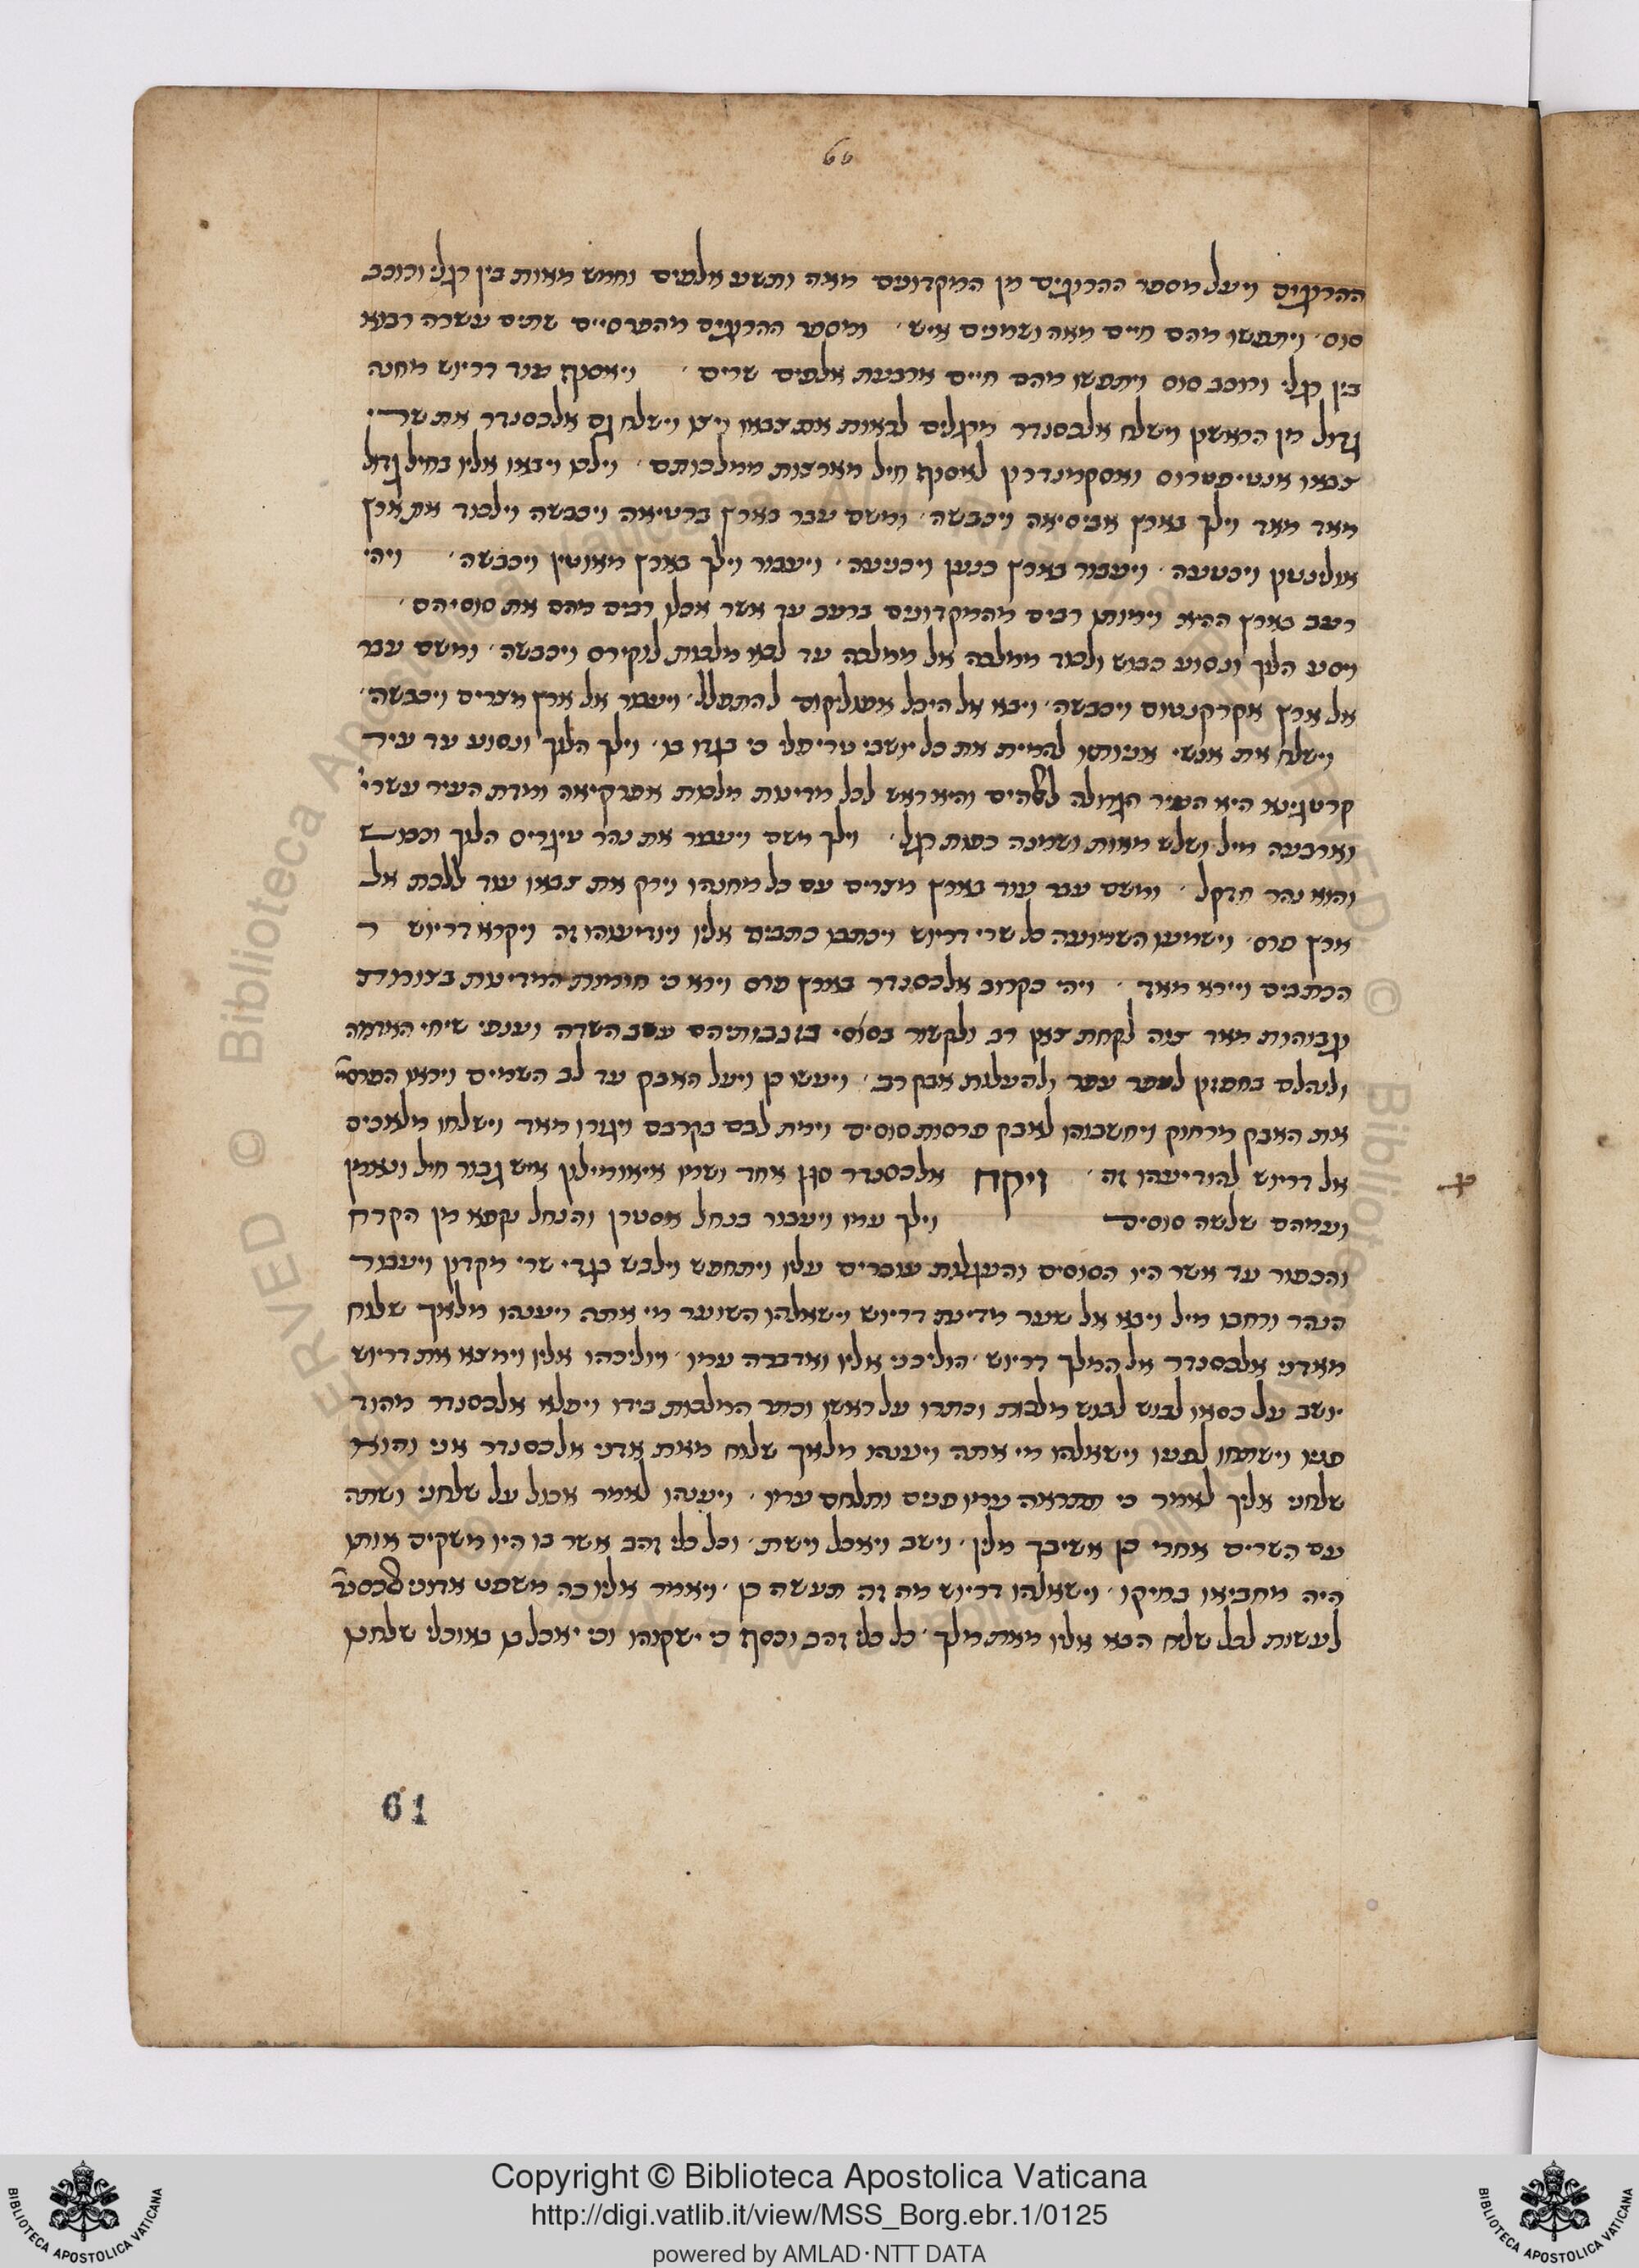 66
ההרוגים ויעל מספר ההרוגים מן המקדונים מאה ותשע אלפים וחמש מאות בין רגלי ורוכב
סוס׳ ויתפשו מהם חיים מאה ושמנים איש׳ ומספר ההרוגים מהפרסיים שתים עשרה רבוא
בין רגלי ורוכב סוס ויתפשו מהם חיים ארבעת אלפים שרים׳ ויאסוף עוד דריוש מחנה
גדול מן הראשון וישלח אלכסנדר מרגלים לראות את צבאו וישלח גם אלכסנדר את שרי
צבאו אנטיפטרוס לאסוף חיל מארצות ממלכותם׳ וילכו ויבאו אליו בחיל גדול
מאד מאד וילך בארץ אביסיאה ויכבשה׳ ומשם עבר בארץ ברטיאה ויכבשה וילכוד את ארץ
ויעבור בארץ כנען ויכניעה׳ ויעבור וילך בארץ מאוטין ויכבשה׳ ויהי
רעב בארץ ההיא וימותו רבים מהמקדונים ברעב עד אשר אכלו רבים מהם את סוסיהם׳
ויסע הלוך ונסוע כבוש ולכוד ממלכה אל ממלכה עד לבא מלכות לוקירס ויכבשה׳ ומשם עבר
אל ארץ אקרקנטוס ויכבשה׳ ויבא אל היכל להתפלל׳ ויעבור אל ארץ מצרים ויכבשה׳
וישלח את אנשי להמית את כל יושבי טריפלי כי בגדו בו׳ וילך הלוך ונסוע עד עיר
קרטגינא היא העיר הגדולה והיא ראש לכל מדינות מלכות אפריקיאה ומדת העיר עשרי׳
וארבעה מיל ושלש מאות ושמנה כפות רגל׳ וילך משם ויעבור את נהר טיגריס הלוך
והוא נהר חדקל׳ ומשם עבר עוד בארץ מצרים עם כל מחנהו וירק את צבאו עוד ללכת אל
ארץ פרס׳ וישמעו השמועה כל שרי דריוש ויכתבו כתבים אליו ויודיעוהו זה ויקרא דריוש
הכתבים ויירא מאד׳ ויהי כקרוב אלכסנדר בארץ פרס וירא כי חומות המדינות בצורות
וגבוהות מאד צוה לקחת צאן רב ולקשור בסוסי בזנבותיהם עשב השדה וענפי שיחי האדמה
ולנהלם בחפזון לעפר עפר ולהעלות אבק רב׳ ויעשו כן ויעל האבק עד לב השמים ויראו הפרסיי׳
את האבק מרחוק ויחשבוהו לאבק פרסות סוסים וימת לבם בקרבם ויגורו מאד וישלחו מלאכים
אל דריוש להודיעהו זה׳ ויקח אלכסנדר סגן אחד ושמו איאומילון איש גבור חיל ונאמן
ועמהם שלשה סוסים וילך עמו ויעבור בנחל אסטרן והנחל קפא מן הקרח
והכפור עד אשר היו הסוסים והעגלות עוברים עליו ויתחפש וילבש בגדי שרי מקדון ויעבור
הנהר ורחבו מיל ויבא אל שער מדינת דריוש וישאלהו השוער מי אתה ויענהו מלאך שלוח
מאדני אלכסנדר אל המלך דריוש׳ הוליכני אליו ואדברה עמו׳ ויוליכהו אליו וימצא את דריוש
יושב על כסאו לבוש לבוש מלכות וכתרו על ראשו וכתר המלכות בידו ויפלא אלכסנדר מהוד
פניו וישתחו לפניו וישאלהו מי אתה ויענהו מלאך שלוח מאת אדני אלכסנדר אני והוא
שלחני אליך לאמר כי תתראה עמו פנים ותלחם עמו׳ ויענהו לאמר אכול על שלחני ושתה
עם השרים אחרי כן אשיבך מלין׳ וישב ויאכל וישת׳ וכל כלי זהב אשר בו היו משקים אותו
היה מחביאו בחיקו׳ וישאלהו דריוש מה זה תעשה כן׳ ויאמר אליו כה משפט אדוני
לעשות לכל שלוח הבא אליו מאת מלך׳ כל כלי זהב וכסף כי ישקוהו וכי יאכלו מאוכלי שלחנו
61
Copyright © Biblioteca Apostolica Vaticana
http://digi.vatlib.it/view/MSS_Borg.ebr.1/0125
powered by AMLAD · NTT DATA
BIBLIOTECA APOSTOLICA VATICANA
BIBLIOTECA APOSTOLICA VATICANA